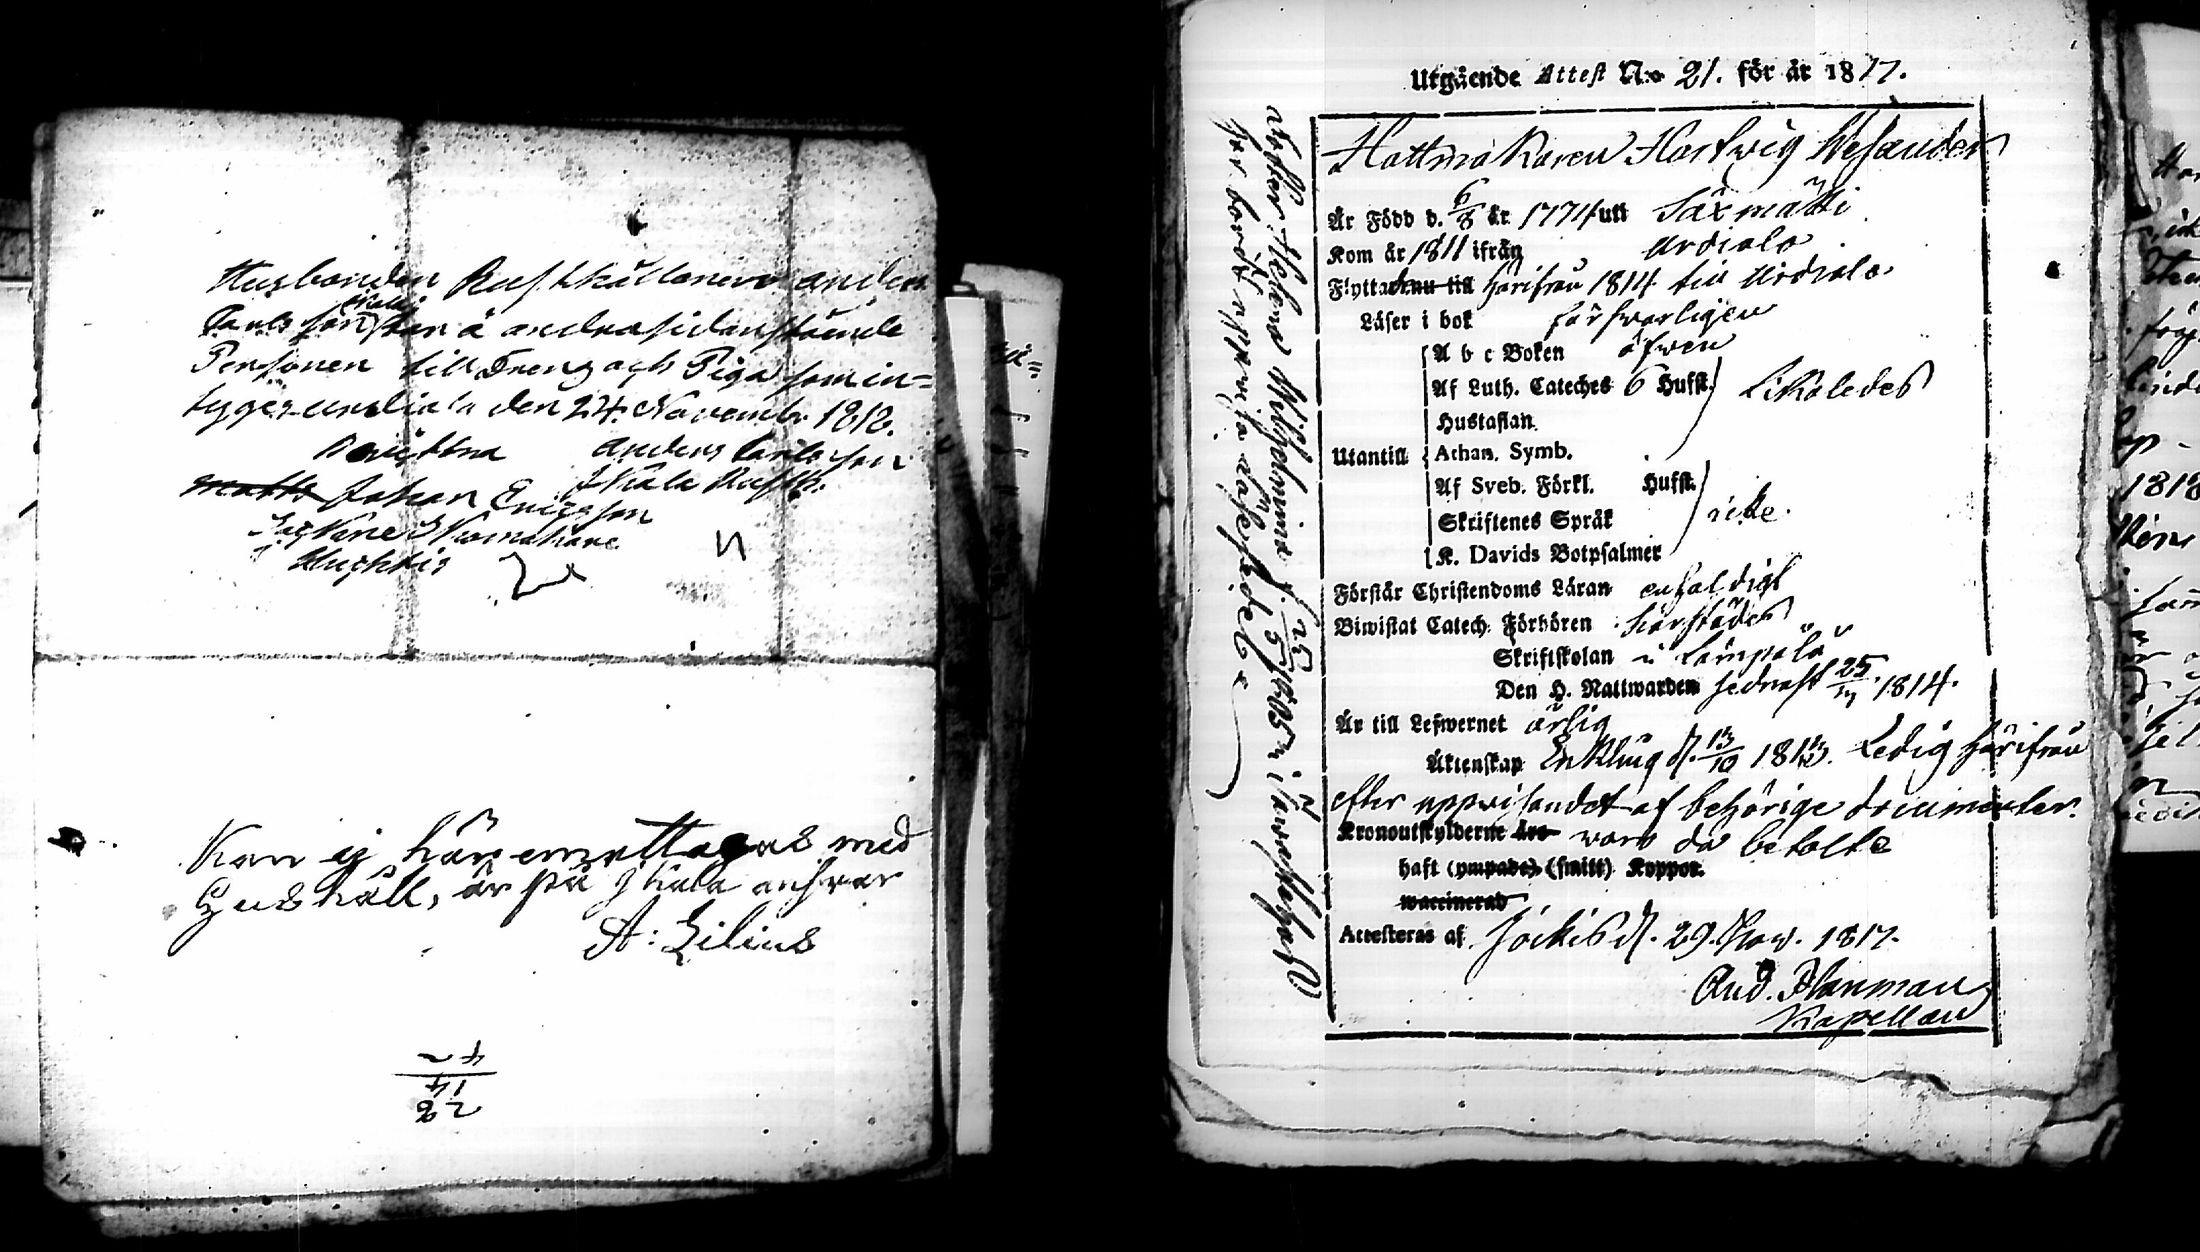 Husbonden Rusthållaren Anders
Carlsson Skall å andra sidan stående
Personen till Dreng och Piga som in=
tygas Urdiala den 24. Novembr. 1818.
Anders Carlsson
Skala Rusth.
Johan Ericsson
Huchtis
Kan ej här emottagas med
Hushåll, är på Skala ansvar
A: Lilius
Utgående Attest N:o 21. för år 1817.
Hattmakaren Hartwig Wesander
Är Född d. 6/8 år 1774 uti Säxmäki
Kom år 1811 ifrån Urdiala
Flyttade nu till härifrån 1814 till Urdiala
Läser i bok försvarligen
A b c Boken äfwen
Af Luth. Cateches 6 Hufst. Likaledes
Hustaflan.
Utantill Athan. Symb.
Af Sveb. Förkl. Hufst.
Skriftenes Språk icke
K. Davids Botpsalmer
Förstår Christendoms Läran enfaldigt
Biwistat Catech. Förhören härstädes
Skriftskolan i Lämpälä
Den H. Nattwarden sednast 25/ 1814.
Är till Lefwernet ärlig
Äktenskap Enkling d. 13/10 1813. Ledig härifrån
efter uppwisandet af behörige documenter.
Kronoutskylderne äro woro då betalte
haft (ympade) (smitt) Koppor.
waccinerad
Attesteras af Jockis d. 29. Nov. 1817.
And. Planman
Kapellan
Dotter Helena Wilhelmina f.